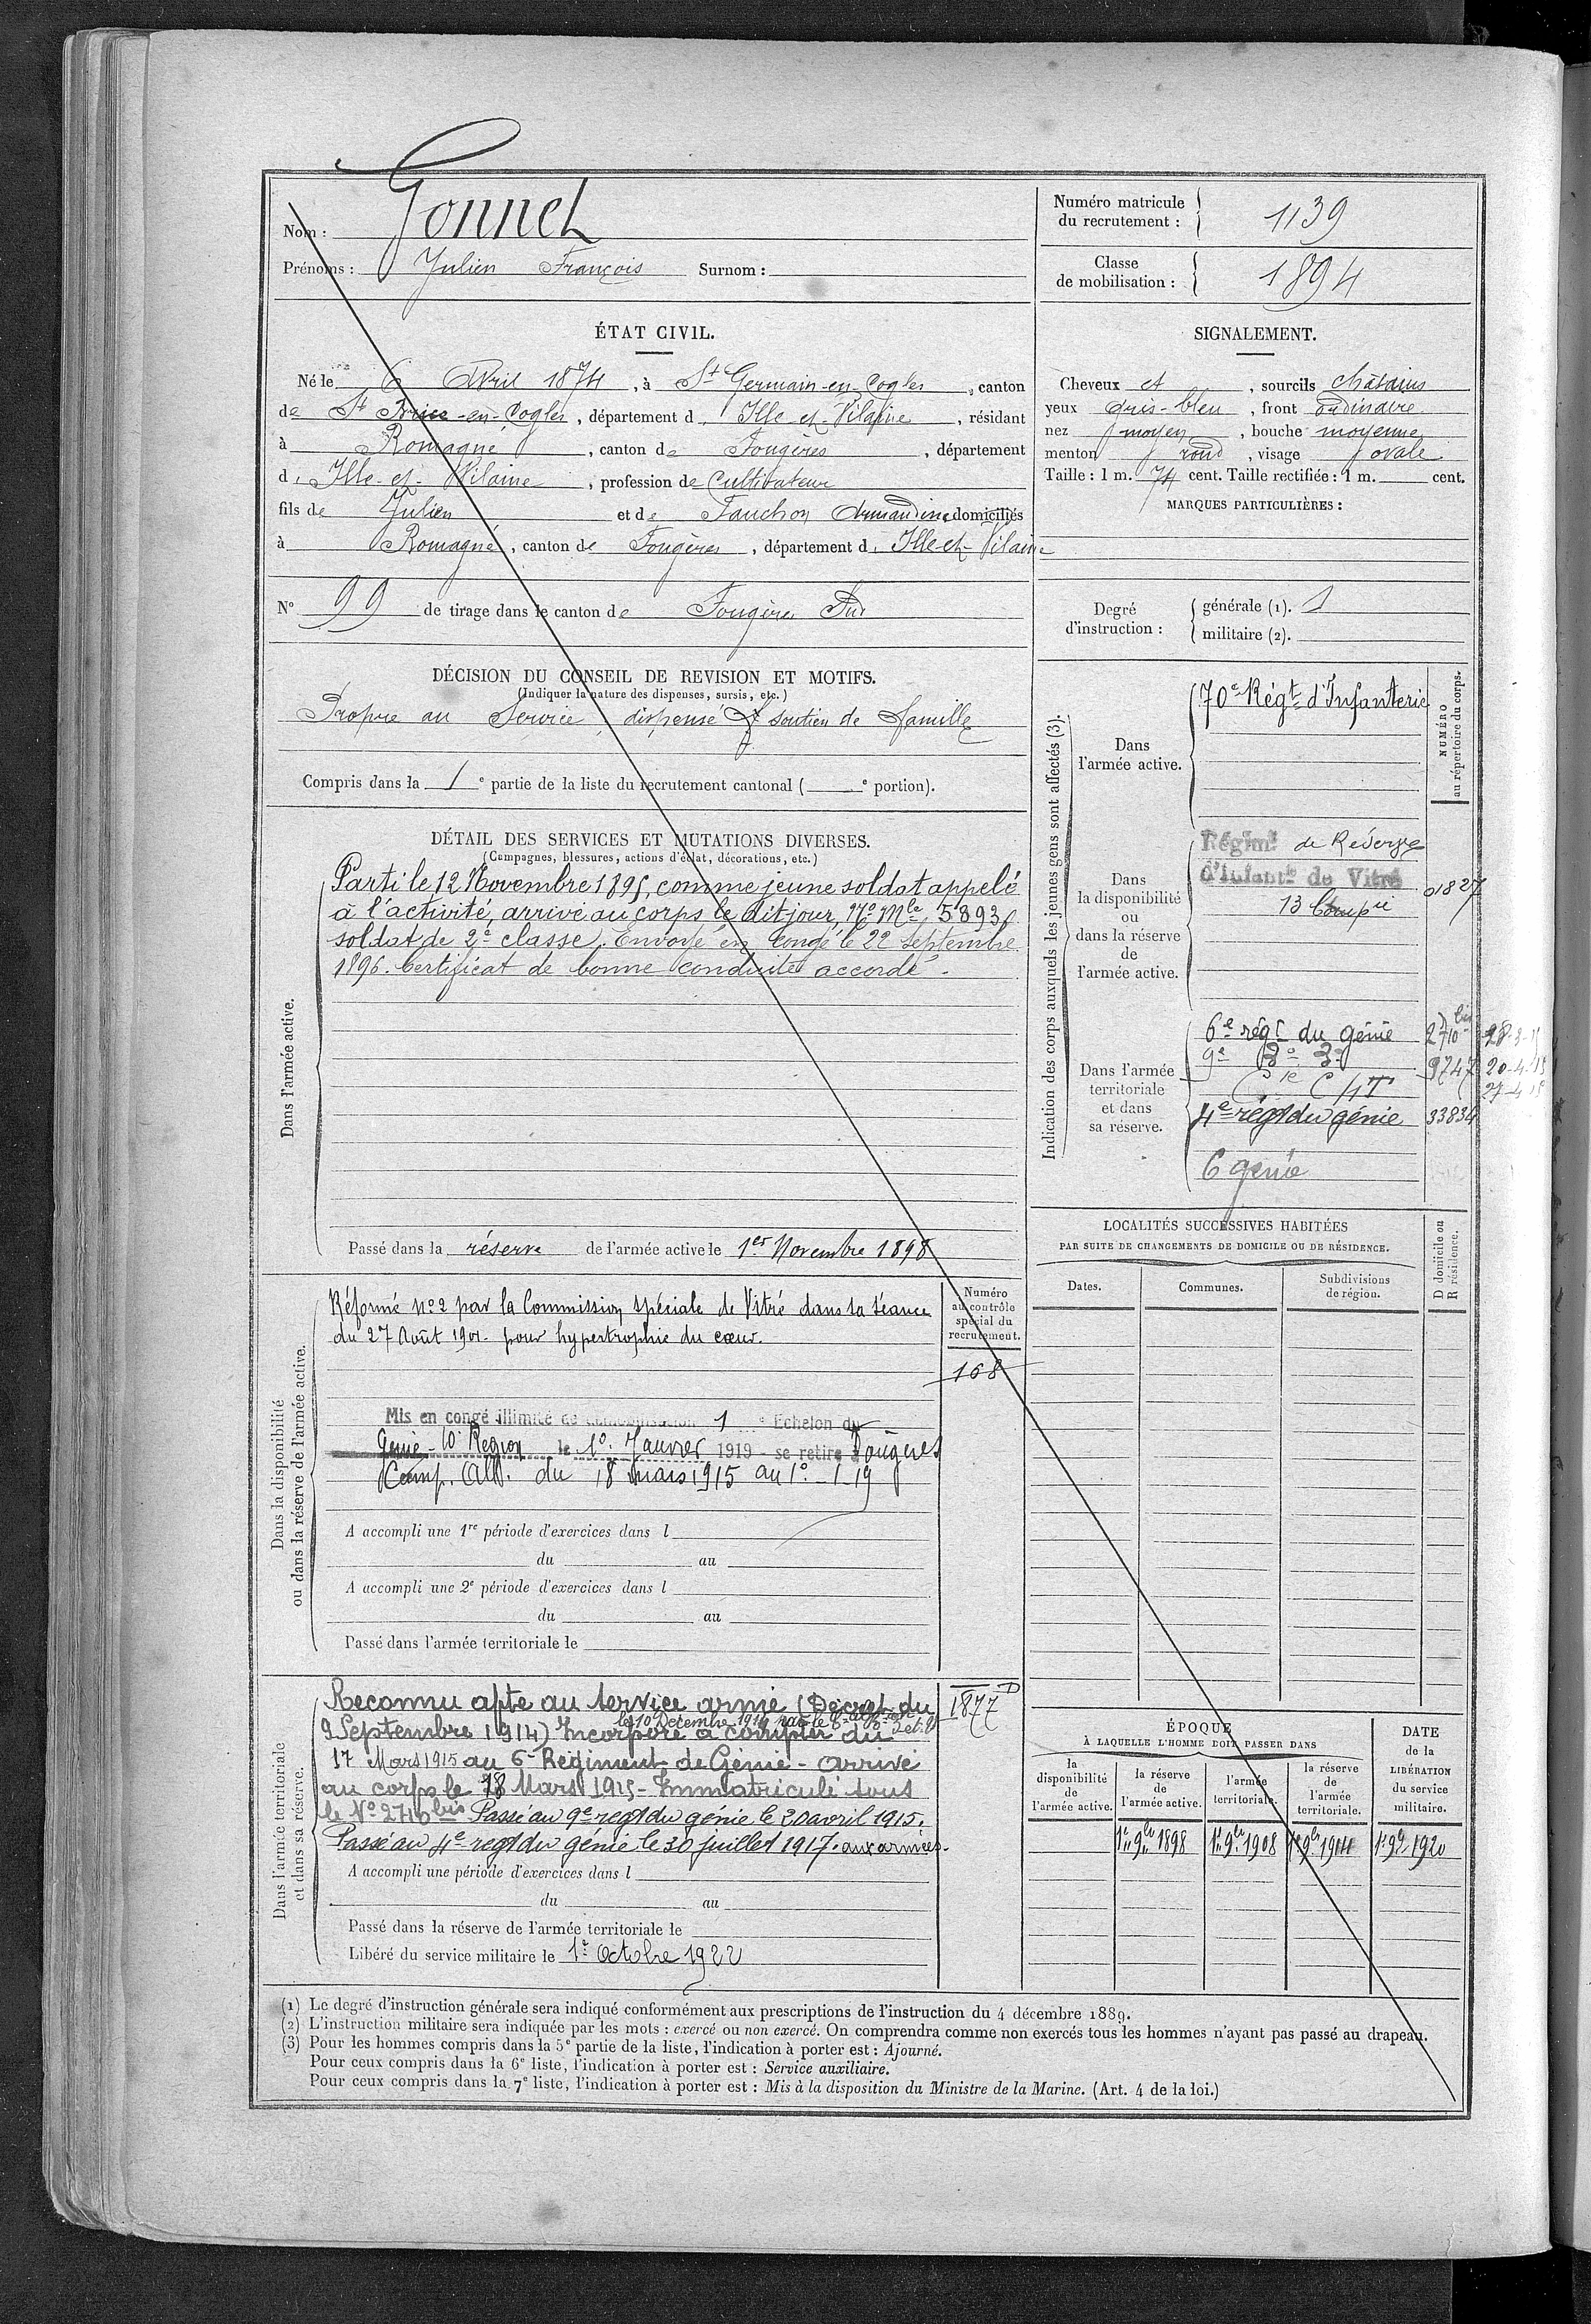 Nom : Gonnet
Prénoms : Julien François Surnom :
Numéro matricule du recrutement : 1139
Classe de mobilisation : 1894
ÉTAT CIVIL.
Né le 6 Avril 1874, à St Germain-en-Cogles, canton
de St Brice-en-Cogles, département d. Ille-et-Vilaine, résidant
à Romagné, canton de Fougères, département
d. Ille-et-Vilaine, profession de Cultivateur
fils de Julien et de Fauchon Armandine domiciliés
à Romagné, canton de Fougères, département d. Ille-et-Vilaine
N° 99 de tirage dans le canton de Fougères Sud
SIGNALEMENT.
Cheveux et , sourcils châtains
yeux gris-bleu , front ordinaire
nez moyen , bouche moyenne
menton rond , visage ovale
Taille : 1 m. 74 cent. Taille rectifiée : 1 m. cent.
MARQUES PARTICULIÈRES :
Degré d'instruction :
générale (1). 1
militaire (2).
DÉCISION DU CONSEIL DE REVISION ET MOTIFS.
(Indiquer la nature des dispenses, sursis, etc.)
Propre au Service, dispensé soutien de famille
Compris dans la 1e partie de la liste du recrutement cantonal ( e portion).
DÉTAIL DES SERVICES ET MUTATIONS DIVERSES.
(Campagnes, blessures, actions d'éclat, décorations, etc.)
Dans l'armée active.
Parti le 12 Novembre 1895, comme jeune soldat appelé
à l'activité, arrivé au corps le dit jour, No Mle 5893,
soldat de 2e classe. Envoyé en congé le 22 Septembre
1896. Certificat de bonne conduite accordé.
Passé dans la réserve de l'armée active le 1er Novembre 1898
Dans la disponibilité
ou dans la réserve de l'armée active.
Réformé no 2 par la Commission spéciale de Vitré dans sa séance
du 27 Août 1901. pour hypertrophie du cœur.
Mis en congé illimité de démobilisation 1 e Echelon du
Génie - 10e Region le 1o. Janvier 1919 - se retire Fougères
Camp. All. du 18 mars 1915 au 1o-1-19
A accompli une 1re période d'exercices dans l
du au
A accompli une 2e période d'exercices dans l
du au
Passé dans l'armée territoriale le
Numéro
au contrôle
spécial du
recrutement.
168
Dans l'armée territoriale
et dans sa réserve.
Reconnu apte au service armé (Décret du
9 Septembre 1914) le 10 Decembre 1914 Incorporé à compter du
17 Mars 1915 au 6e Régiment de Génie - arrivé
au corps le 18 Mars 1915 - Immatriculé sous
le No 2710 bis Passé au 9e regt du génie le 20 avril 1915.
Passé au 4e regt du génie le 30 juillet 1917. aux armées.
A accompli une période d'exercices dans l
du au
Passé dans la réserve de l'armée territoriale le
Libéré du service militaire le 1er Octobre 1922
1877 D
Indication des corps auxquels les jeunes gens sont affectés (3).
NUMÉRO
au répertoire du corps.
Dans
l'armée active.
70e Régt d'Infanterie
Dans
la disponibilité
ou
dans la réserve
de
l'armée active.
Régimt de Réserve
d'Infantie de Vitré
13 Compie
01827
Dans l'armée
territoriale
et dans
sa réserve.
6e régt du génie 2710 bis 28-3-15
9e do do 9747 20-4-15
Cie C /1T 27-4-15
4e régt du génie 33834
6 génie
LOCALITÉS SUCCESSIVES HABITÉES
PAR SUITE DE CHANGEMENTS DE DOMICILE OU DE RÉSIDENCE.
Dates.
Communes.
Subdivisions
de région.
D domicile ou
R résidence.
ÉPOQUE
À LAQUELLE L'HOMME DOIT PASSER DANS
la
disponibilité
de
l'armée active.
la réserve
de
l'armée active.
l'armée
territoriale.
la réserve
de
l'armée
territoriale.
DATE
de la
LIBÉRATION
du service
militaire.
1er 9bre 1898
1er 9bre 1908
1er 9bre 1914
1er 9bre 1920
(1) Le degré d'instruction générale sera indiqué conformément aux prescriptions de l'instruction du 4 décembre 1889.
(2) L'instruction militaire sera indiquée par les mots : exercé ou non exercé. On comprendra comme non exercés tous les hommes n'ayant pas passé au drapeau.
(3) Pour les hommes compris dans la 5e partie de la liste, l'indication à porter est : Ajourné.
Pour ceux compris dans la 6e liste, l'indication à porter est : Service auxiliaire.
Pour ceux compris dans la 7e liste, l'indication à porter est : Mis à la disposition du Ministre de la Marine. (Art. 4 de la loi.)